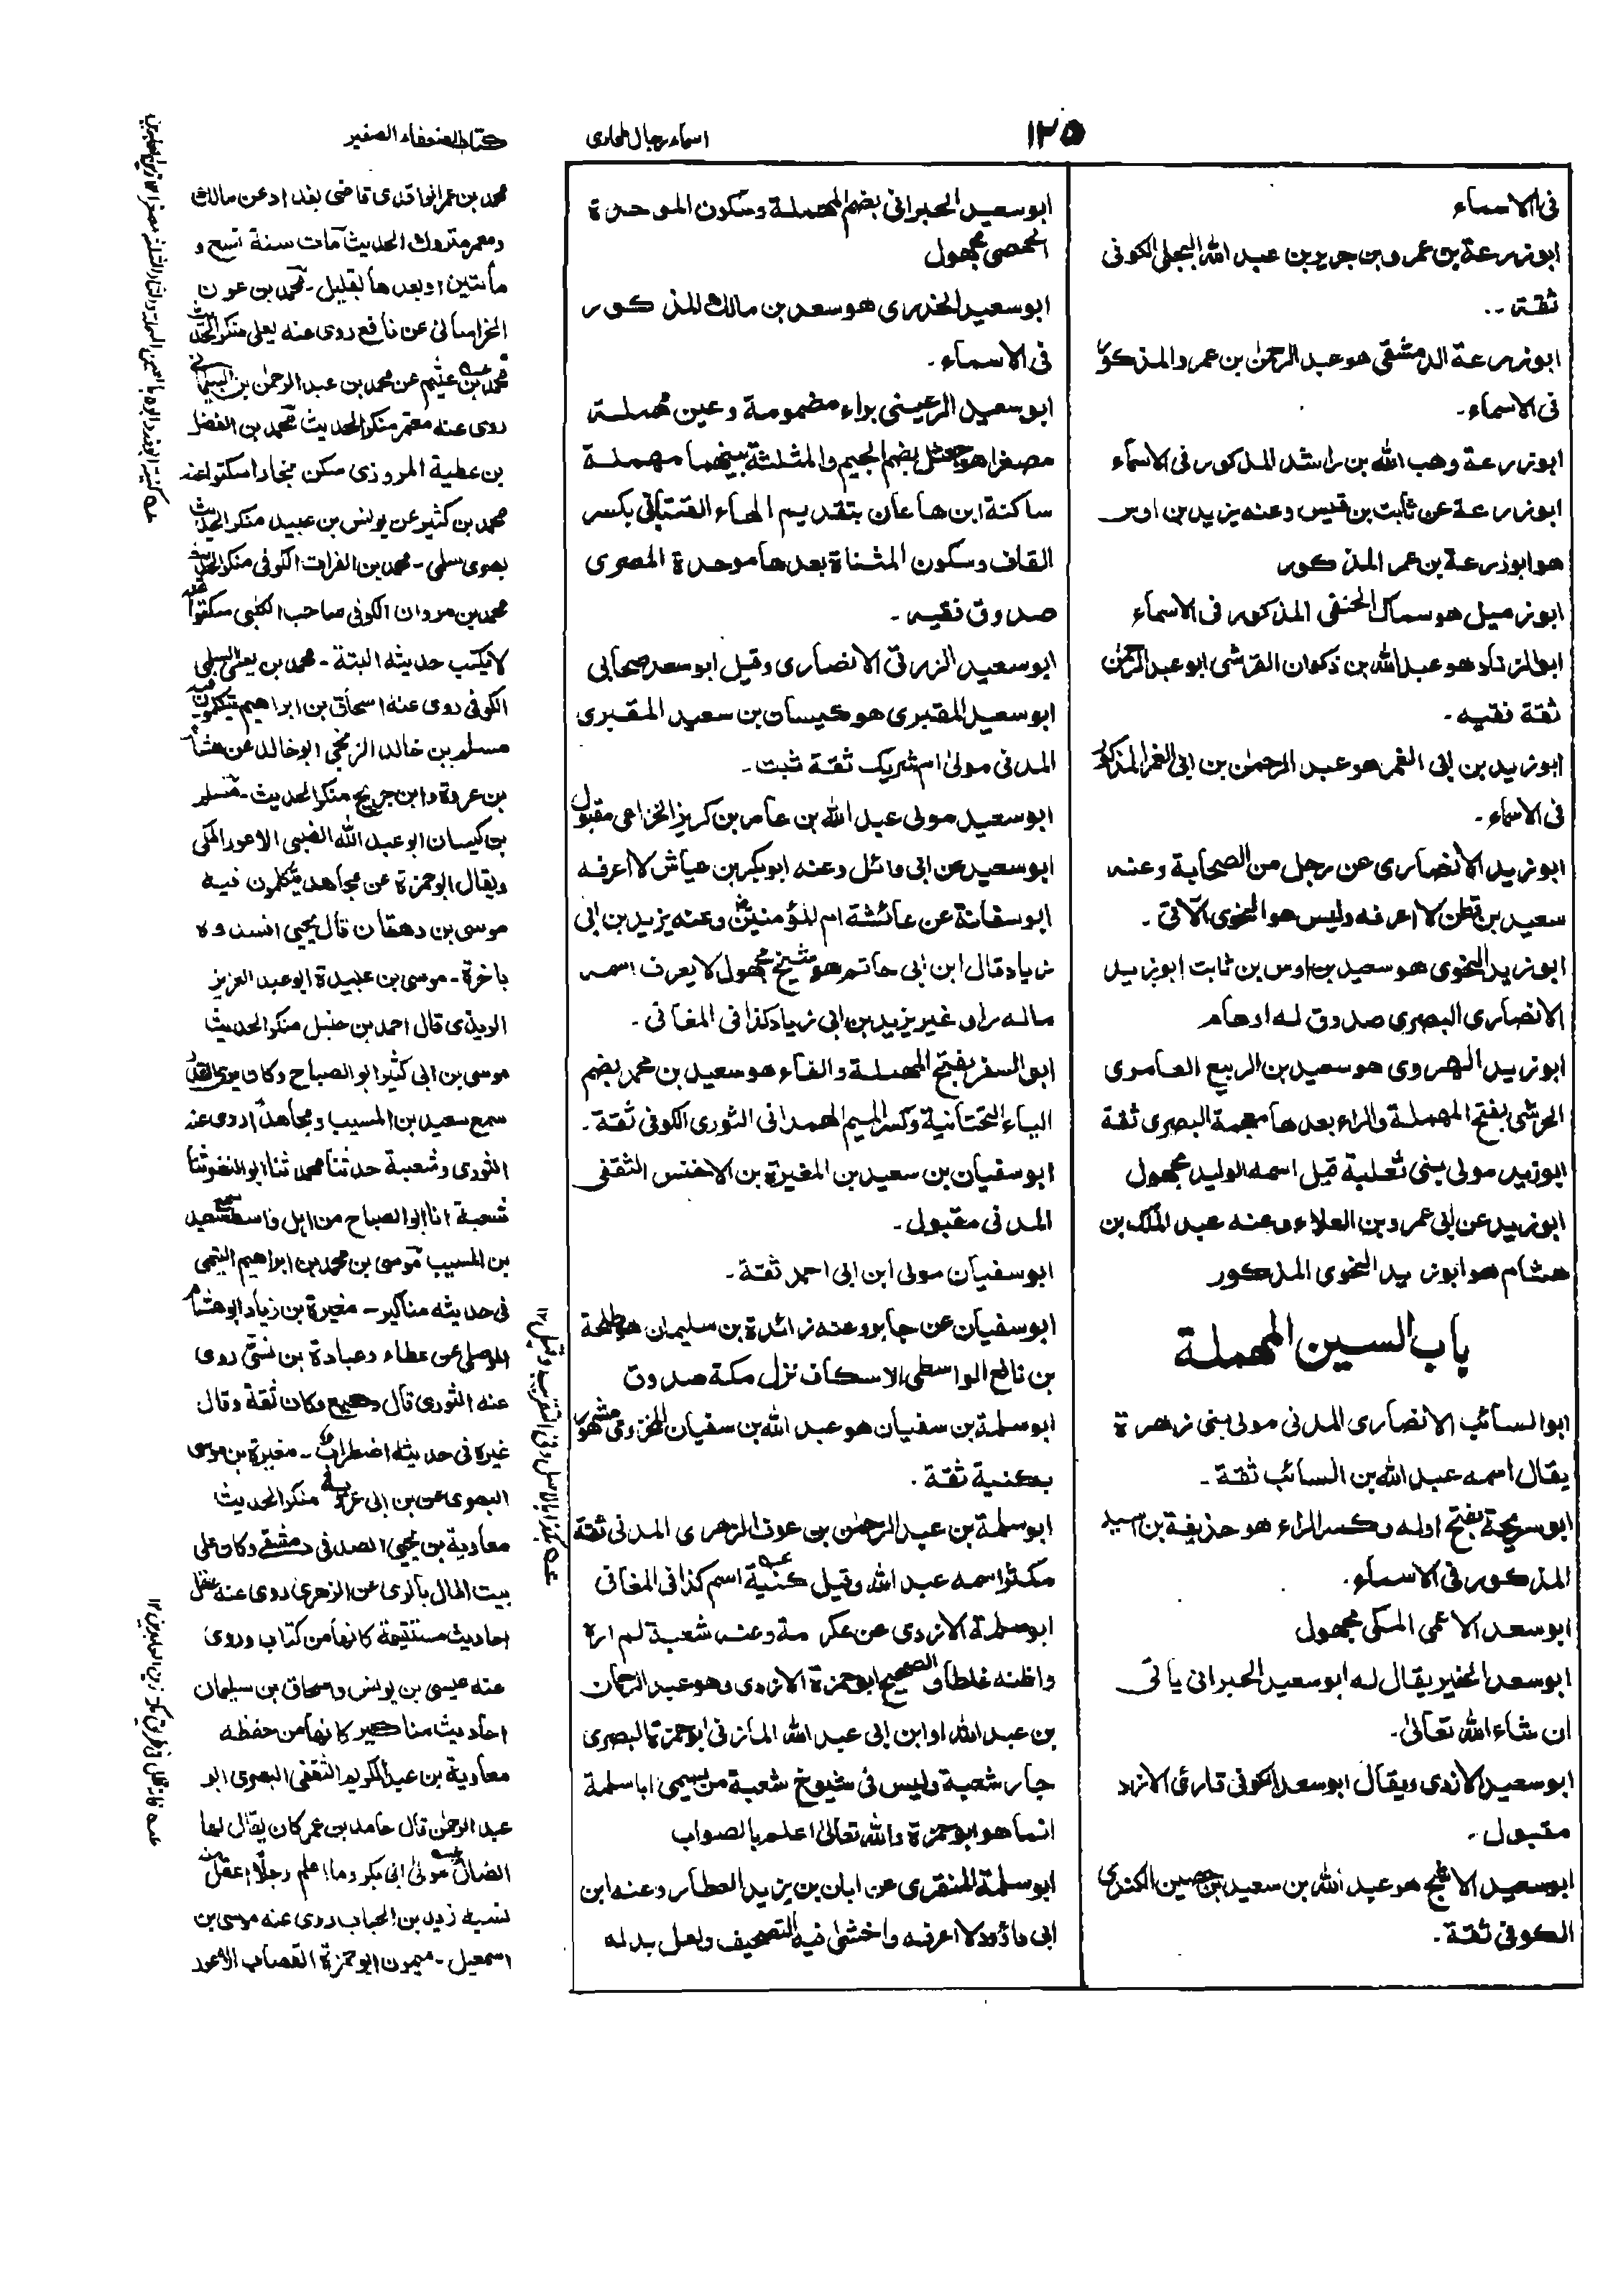 ١٢٥
اسماء رجال طحاوى
كتاب الضعفاء الصغير
فى الاسماء
ابو زرعة بن عمرو بن جرير بن عبد الله البجلى الكوفى
ثقة ۔۔
ابو زرعة الدمشقى هو عبد الرحمٰن بن عمرو المذكور
فى الاسماء۔
ابو زرعة وهب الله بن راشد المذكور فى الاسماء
ابو زرعة عن ثابت بن قيس وعنه يزيد بن اوس
هو ابو زرعة بن عمر المذكور
ابو زميل هو سماك الحنفى المذكور فى الاسماء
ابو الزناد هو عبد الله بن ذكوان القرشى ابو عبد الرحمٰن
ثقة فقيه ۔
ابو زيد بن ابى الغمر هو عبد الرحمٰن بن ابى الغمر المذكور
فى الاسماء ۔
ابو زيد الانصارى عن رجل من الصحابة وعنه
سعيد بن قطن لا اعرفه وليس هو النحوى الآتى ۔
ابو زيد النحوى هو سعيد بن اوس بن ثابت ابو زيد
الانصارى البصرى صدوق له اوهام
ابو زيد الهروى هو سعيد بن الربيع العامرى
الحرشى بفتح المهملة والراء بعدها معجمة البصرى ثقة
ابو زيد مولى بنى ثعلبة قيل اسمه الوليد مجهول
ابو زيد عن ابى عمرو بن العلاء وعنه عبد الملك بن
هشام هو ابو زيد النحوى المذكور
باب السين المهملة
ابو السائب الانصارى المدنى مولى بنى زهرة
يقال اسمه عبد الله بن السائب ثقة ۔
ابو سريحة بفتح اوله وكسر الراء هو حذيفة بن اسيد
المذكور فى الاسماء۔
ابو سعد الاعمى المكى مجهول
ابو سعد الخير يقال له ابو سعيد الحبرانى ياتى
ان شاء الله تعالىٰ۔
ابو سعيد الازدى ويقال ابو سعد الكوفى قارئ الازد
مقبول ۔
ابو سعيد الاشج هو عبد الله بن سعيد بن حصين الكندى
الكوفى ثقة ۔
ابو سعيد الحبرانى بضم المهملة وسكون الموحدة
الحمصى مجهول
ابو سعيد الخدرى هو سعد بن مالك المذكور
فى الاسماء ۔
ابو سعيد الرعينى براء مضمومة وعين مهملة
مصغرا هو جعثل بضم الجيم والمثلثة بينهما مهملة
ساكنة ابن هاعان بتقديم الهاء القتبانى بكسر
القاف وسكون المثناة بعدها موحدة المصرى
صدوق فقيه ۔
ابو سعيد الزرقى الانصارى وقيل ابو سعد صحابى
ابو سعيد المقبرى هو كيسان بن سعيد المقبرى
المدنى مولى ام شريك ثقة ثبت ۔
ابو سعيد مولى عبد الله بن عامر بن كريز الخزاعى مقبول
ابو سعيد عن ابى وائل وعنه ابو بكر بن عياش لا اعرفه
ابو سفانة عن عائشة ام المؤمنين وعنه يزيد بن ابى
زياد قال ابن ابى حاتم هو شيخ مجهول لا يعرف اسمه
ماله راو غير يزيد بن ابى زياد كذا فى المغانى ۔
ابو السفر بفتح المهملة والفاء هو سعيد بن محمد بضم
الياء التحتانية وكسر الميم الهمدانى الثورى الكوفى ثقة ۔
ابو سفيان بن سعيد بن المغيرة بن الاخنس الثقفى
المدنى مقبول ۔
ابو سفيان مولى ابن ابى احمد ثقة ۔
ابو سفيان عن جابر وعنه زائدة بن سليمان هو طلحة
بن نافع الواسطى الاسكاف نزل مكة صدوق
ابو سلمة بن سفيان هو عبد الله بن سفيان المخزومى مشهور
بكنية ثقة ۔
ابو سلمة بن عبد الرحمٰن بن عوف الزهرى المدنى ثقة
مكثر اسمه عبد الله وقيل كنية اسم كذا فى المغانى
ابو سلمة الازدى عن عكرمة وعنه شعبة لم اره
واظنه غلطا والصحيح ابو حمزة الازدى وهو عبد الرحمان
بن عبد الله او ابن ابى عبد الله المازنى ابو حمزة البصرى
جار شعبة وليس فى شيوخ شعبة من يسمى ابا سلمة
انما هو ابو حمزة والله تعالىٰ اعلم بالصواب
ابو سلمة المنقرى عن ابان بن يزيد العطار وعنه ابن
ابى داؤد لا اعرفه واخشىٰ فيه التصحيف ولعل بدله
محمد بن عمر الواقدى قاضى بغداد عن مالك
ومعمر متروك الحديث مات سنة تسع و
مأتين او بعدها لقليل ۔ محمد بن عون
الخراسانى عن نافع روى عنه يعلى منكر الحديث
محمد بن عثيم عن محمد بن عبد الرحمٰن بن البيلمانى
روى عنه معتمر منكر الحديث محمد بن الفضل
بن عطية المروزى سكن بخارا سكتوا عنه
محمد بن كثير عن يونس بن عبيد منكر الحديث
بصرى سلمى ۔ محمد بن الفرات الكوفى منكر الحديث
محمد بن مروان الكوفى صاحب الكلبى سكتوا عنه
لا يكتب حديثه البتة ۔ محمد بن يعلى السلمى
الكوفى روى عنه اسحاق بن ابراهيم يتكلمون فيه
مسلم بن خالد الزنجى ابو خالد عن هشام
بن عروة وابن جريج منكر الحديث ۔ مسلم
بن كيسان ابو عبد الله الضبى الاعور المكى
ويقال ابو حمزة عن مجاهد يتكلمون فيه
موسى بن دهقان قال يحيى افسدوه
باخرة ۔ موسى بن عبيدة ابو عبد العزيز
الربذى قال احمد بن حنبل منكر الحديث
موسى بن ابى كثير ابو الصباح وكان يرى القدر
سمع سعيد بن المسيب ومجاهدا روى عنه
الثورى وشعبة حدثنا محمد ثنا ابو النضر ثنا
شعبة انا ابو الصباح من اهل واسط سمع سعيد
بن المسيب موسى بن محمد بن ابراهيم التيمى
فى حديثه مناكير ۔ مغيرة بن زياد ابو هشام
الموصلى عن عطاء وعبادة بن نسىّ روى
عنه الثورى قال وكيع وكان ثقة وقال
غيره فى حديثه اضطراب ۔ مغيرة بن موسى
البصرى عن بن ابى عروبة منكر الحديث
معاوية بن يحيى الصدفى دمشقى وكان على
بيت المال بالرى عن الزهرى روى عنه هقل
احاديث مستقيمة كانها من كتاب وروى
عنه عيسى بن يونس واسحاق بن سليمان
احاديث مناكير كانها من حفظه
معاوية بن عبد الكريم الثقفى البصرى ابو
عبد الرحمٰن قال حامد بن عمر كان يقال لها
الضال مولى ابى بكر وما اعلم رجلا اعقل منه
نسبه زيد بن الحباب روى عنه موسى بن
اسمعيل ۔ ميمون ابو حمزة القصاب الاعور